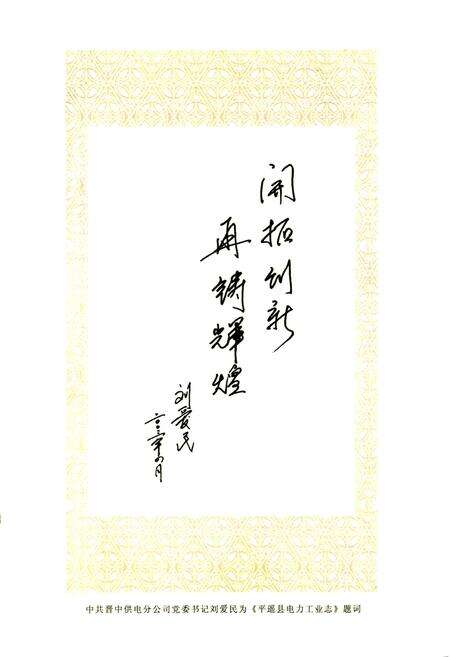 開拓创新
再铸輝煌
刘爱民
二〇〇二年四月
中共晋中供电分公司党委书记刘爱民为《平遥县电力工业志》题词